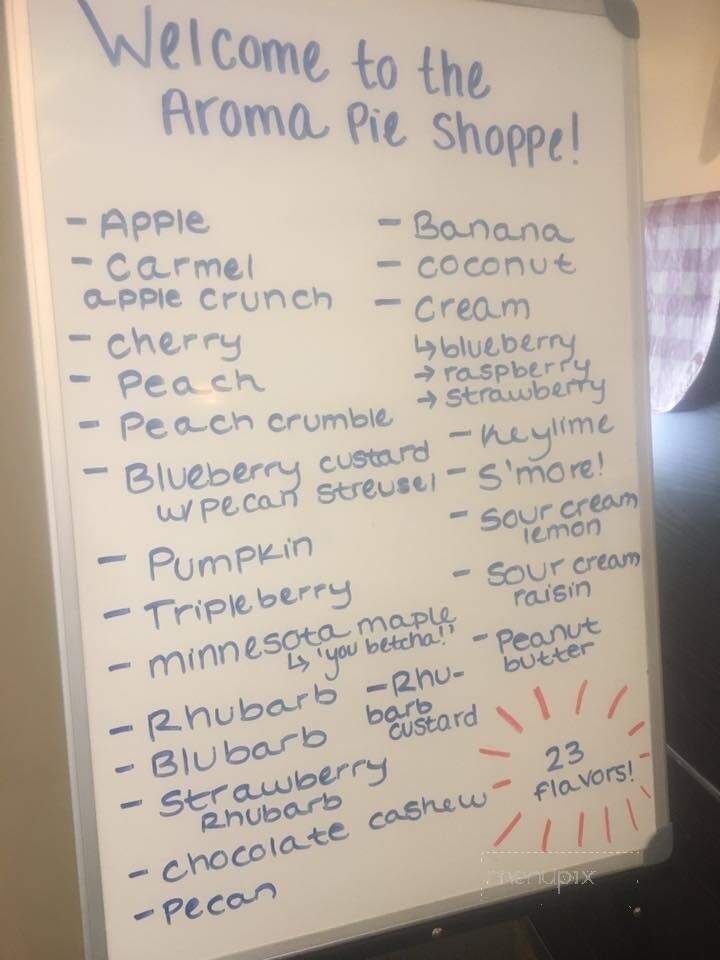 Welcome to the
Aroma Pie Shoppe!
- Apple
- Carmel
apple crunch
- Cherry
- Peach
- Peach crumble
- Blueberry custard
w/ pecan streusel
- Pumpkin
- Tripleberry
- minnesota maple
↳ 'you betcha!'
- Rhubarb
- Blubarb
- Strawberry
Rhubarb
- chocolate cashew
- Pecan
- Banana
- coconut
- cream
↳ blueberry
→ raspberry
→ strawberry
- Keylime
- S'more!
- Sour cream
lemon
- Sour cream
raisin
- Peanut
butter
- Rhu-
barb
custard
23
flavors!
menupix